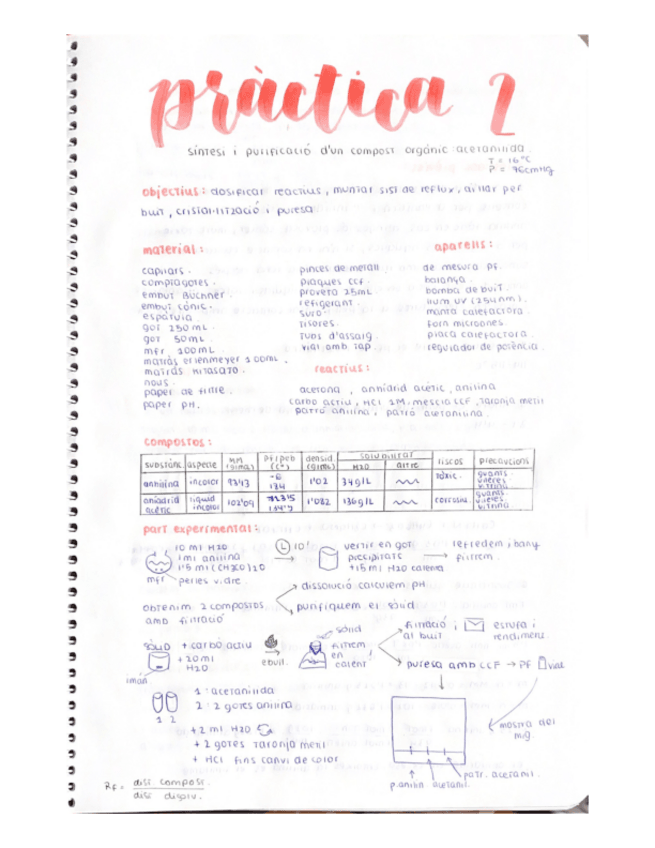 pràctica 2
síntesi i purificació d'un compost orgànic: acetanilida.
T = 16°C
P = 76cmHg
objectius: dosificar reactius, muntar sist de reflux, aïllar per
buit, cristal·lització i puresa
material:
capil·lars.
comptagotes.
embut Büchner.
embut cònic.
espàtula
got 250 mL.
got 50mL.
mfr 100mL
matràs erlenmeyer 100mL.
matràs kitasato.
nous.
paper de filtre.
paper pH.
pinces de metall
plaques ccf.
proveta 25mL.
refrigerant.
suro.
tisores.
tubs d'assaig.
vial amb tap.
aparells:
de mesura pf.
balança.
bomba de buit.
llum uv (254nm).
manta calefactora.
forn microones.
placa calefactora.
regulador de potència.
reactius:
acetona, anhídrid acètic, anilina
carbó actiu, HCl 2M, mescla CCF, taronja metil
patró anilina, patró acetanilida.
compostos:
substànc. aspecte MM (g/mol) Pf/Peb (C°) densid (g/mL) solubilitat H2O altre riscos precaucions
anilina incolor 93'13 -6 184 1'02 34g/L tòxic. guants. ulleres vitrina
anhídrid acètic líquid incolor 102'09 1'082 136g/L corrosiu. guants. ulleres vitrina
part experimental:
10 ml H2O
1 ml anilina
1'5 ml (CH3CO)2O
mfr perles vidre.
10'
vertir en got
precipitats
+15 ml H2O calenta
refredem i bany
filtrem.
obtenim 2 compostos
amb filtració
dissolució calculem pH
purifiquem el sòlid
sòlid + carbó actiu
+ 20ml
H2O
imán
ebull.
sòlid
filtrem
en
calent
filtració
al buit
i
estufa i
rendiment.
puresa amb CCF → PF vial
1 2
1: acetanilida
2: 2 gotes anilina
+ 2 ml H2O
+ 2 gotes taronja metil
+ HCl fins canvi de color
mostra del
mig.
p.anilin acetanil. patr. acetanil.
Rf = dist. compost. / dist. disolv.